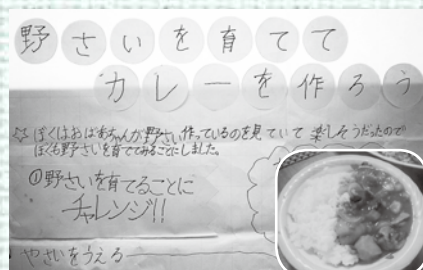 野さいを育てて
カレーを作ろう
☆ぼくはおばあちゃんが野さい作っているのを見ていて楽しそうだったので
ぼくも野さいを育ててみることにしました。
①野さいを育てることに
チャレンジ!!
やさいをうえる